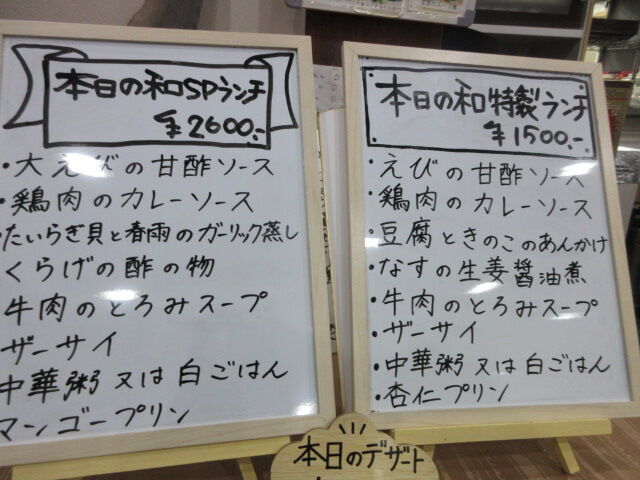 本日の和SPランチ
¥2600,-
・大えびの甘酢ソース
・鶏肉のカレーソース
・たいらぎ貝と春雨のガーリック蒸し
くらげの酢の物
牛肉のとろみスープ
ザーサイ
中華粥又は白ごはん
マンゴープリン
本日の和特製ランチ
¥1500,-
・えびの甘酢ソース
・鶏肉のカレーソース
・豆腐ときのこのあんかけ
・なすの生姜醤油煮
・牛肉のとろみスープ
・ザーサイ
・中華粥又は白ごはん
・杏仁プリン
本日のデザート